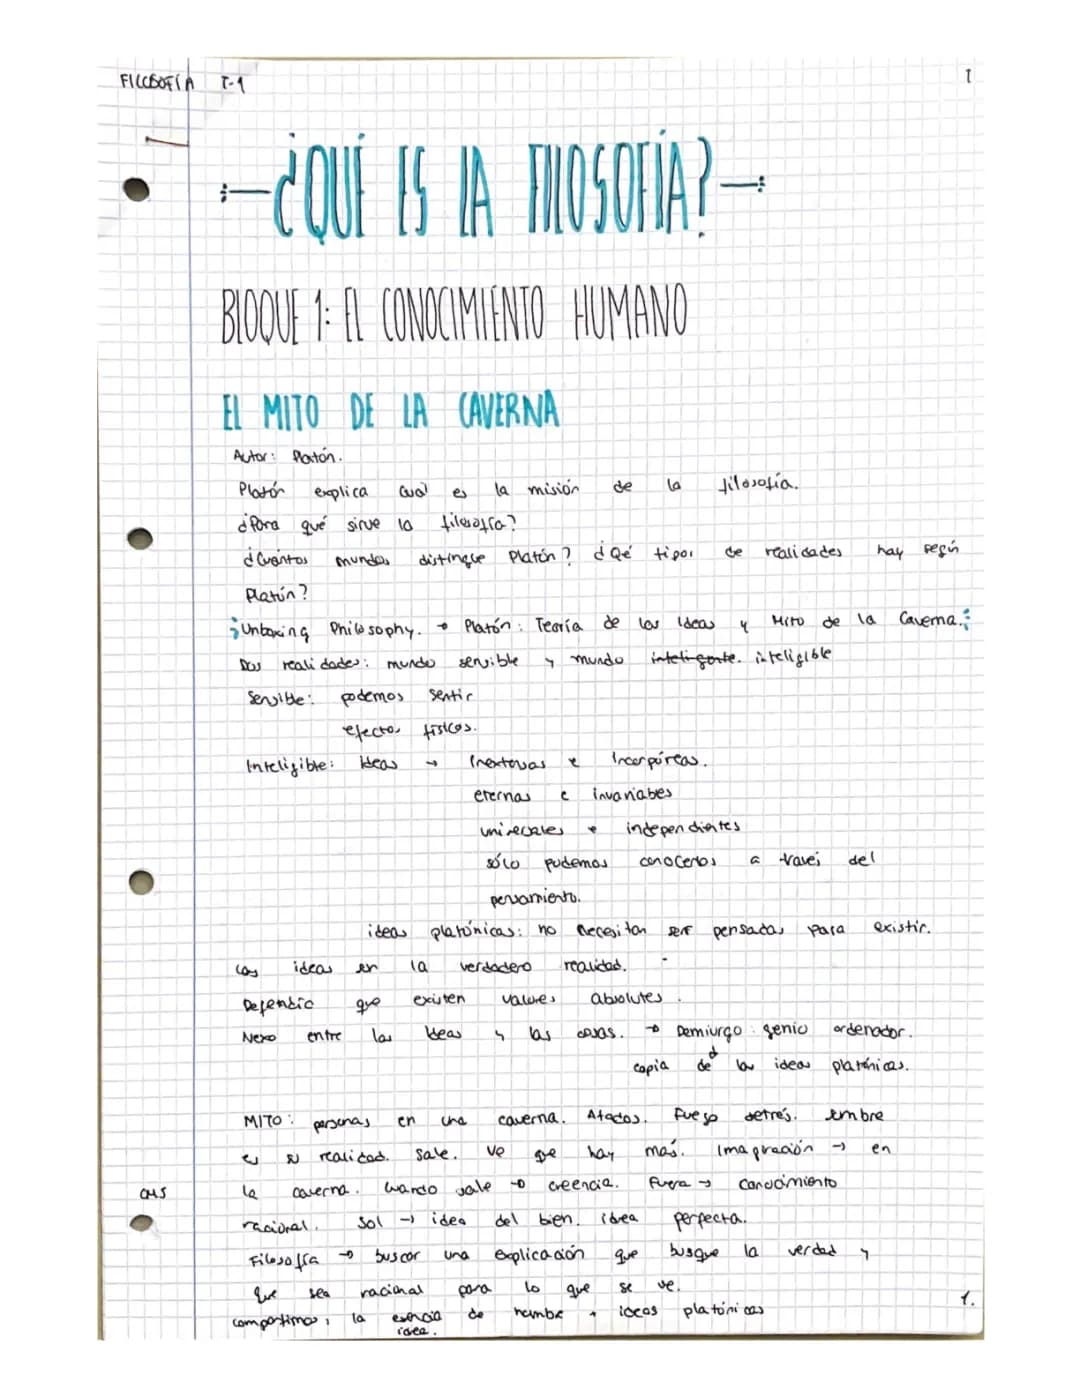 FILOSOFÍA T-1
1
¿QUÉ ES LA FILOSOFÍA?
BLOQUE 1: EL CONOCIMIENTO HUMANO
EL MITO DE LA CAVERNA
Autor: Platón.
Platón explica cual es la misión de la filosofía.
¿Para qué sirve la filosofía?
¿Cuántos mundos distingue Platón? ¿Qé tipos de realidades hay según
Platón?
Unboxing Philosophy. → Platón: Teoría de las Ideas y Mito de la Caverna.
Dos realidades: mundo sensible y mundo inteligente. inteligible
Sensible: podemos sentir
efectos físicos.
Inteligible: Ideas → Inextensas e Incorpóreas.
eternas e invariables
universales e independientes
sólo podemos conocerlos a través del
pensamiento.
ideas platónicas: no necesitan ser pensadas para existir.
Las ideas en la verdadero realidad.
Defendio que existen valores absolutes.
Nexo entre las Ideas y las cosas. → Demiurgo: genio ordenador.
copia de las ideas platónicas.
MITO: personas en una caverna. Atados. Fuego detrás.
es su realidad. Sale. Ve que hay más. Imaginación → en
la caverna. Cuando sale → creencia. Fuera → conocimiento
racional. Sol → idea del bien. idea perfecta.
Filosofía → buscar una explicación que busque la verdad y
que sea racional para lo que se ve.
compartimos, la esencia de hombre + ideas platónicas
idea.
1.